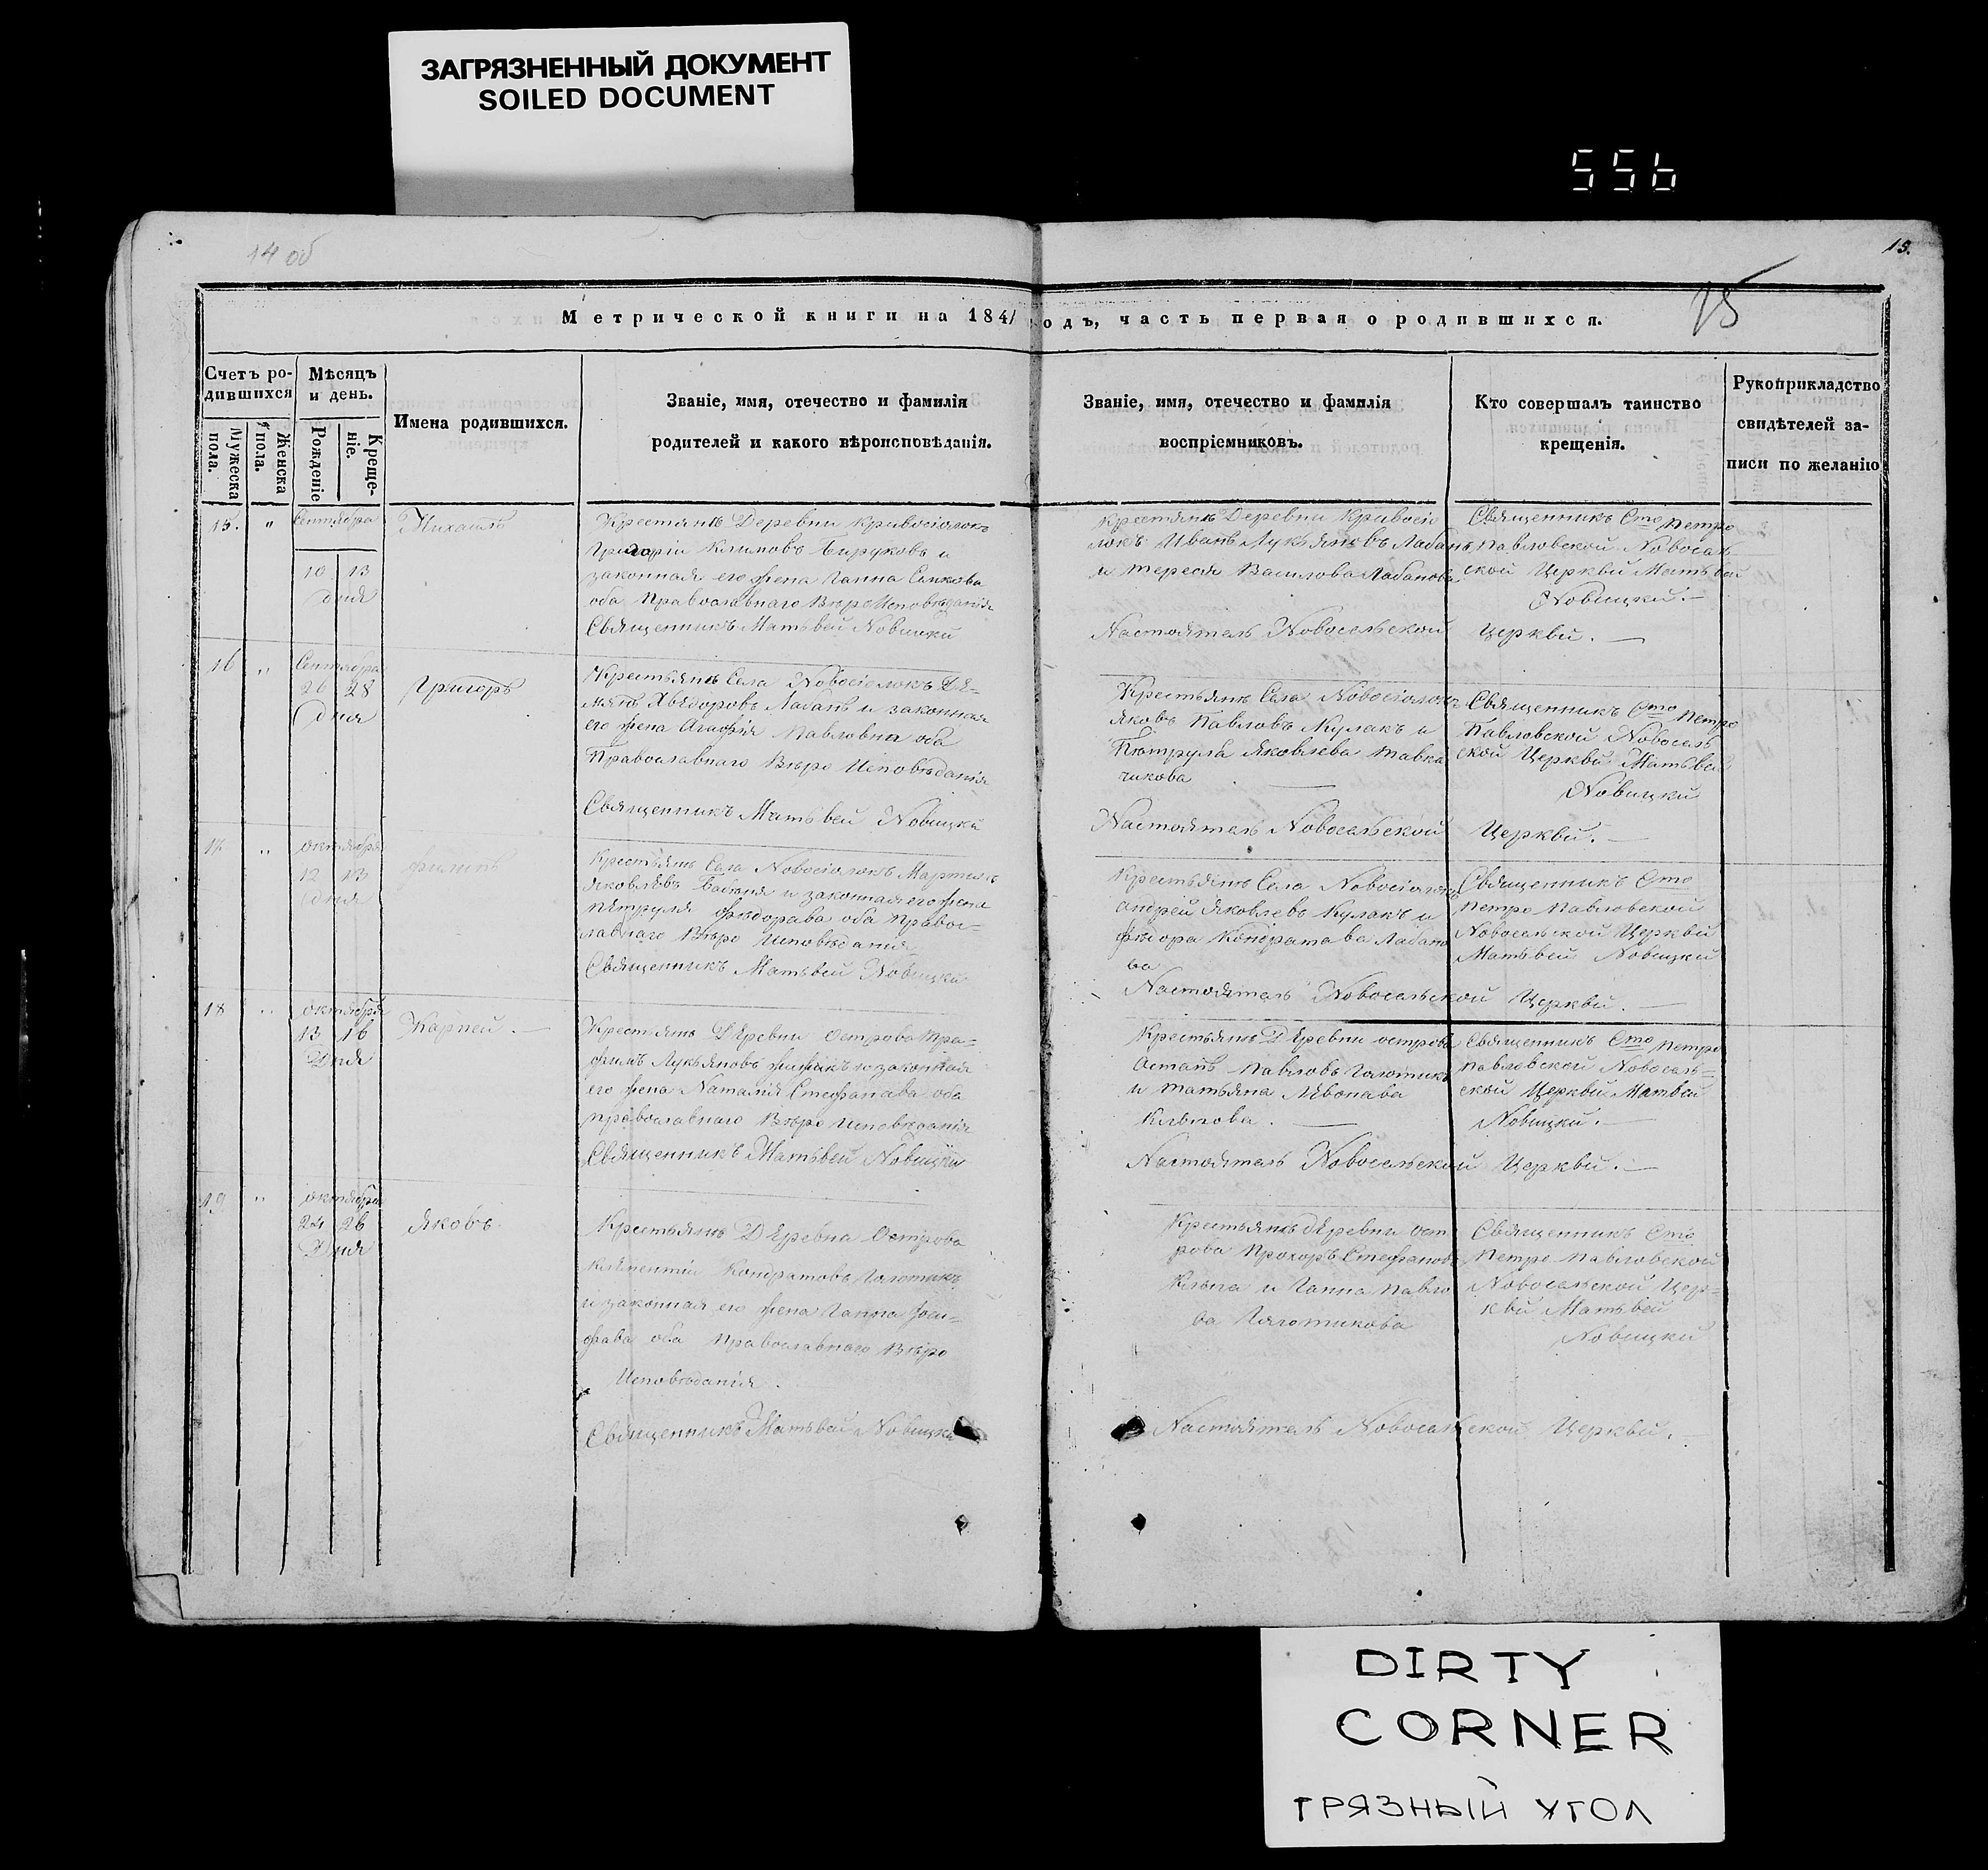 ЗАГРЯЗНЕННЫЙ ДОКУМЕНТ
SOILED DOCUMENT
556
14 об
15.
15
Метрической книги на 1841 одъ, часть первая о родившихся.
Счетъ родившихся
Мужеска пола.
Женска пола.
Мѣсяцъ и день.
Рожденіе
Крещеніе.
Имена родившихся.
Званіе, имя, отечество и фамилія
родителей и какого вѣроисповѣданія.
Званіе, имя, отечество и фамилія
воспріемниковъ.
Кто совершалъ таинство
крещенія.
Рукоприкладство
свидѣтелей за-
писи по желанію
15. "
Сентября
10 13
дня
Михаилъ
Крестянъ Деревни Кривосіолокъ
Григоріи Климовъ Бируковъ и
законная его жена Ганна
оба Православнаго Вѣро Исповѣданія
Священникъ Матьвей Новицки
Крестянъ Деревни Кривосіо
локъ Иванъ Лукьяновъ Лабанъ
и Тереся Василова Лабанова
Настоятель Новосельской Церквй.
Священникъ Сто Петро
Павловской Новосель
ской Церквй Матьвей
Новицкй.
16 "
Сентября
26 28
дня
Григоръ
Крестьянъ Села Новосіолокъ ДЕ-
мянъ Хвѣдоровъ Лабанъ и законная
его жена Агафія Павловна оба
Православнаго Вѣро Исповѣданія
Священникъ Матьвей Новицки
Крестьянъ Села Новосіолокъ
Яковъ Павловъ Кулакъ и
Пётрула Яковлева Тавка
чикова
Настоятель Новосельской Церквй.
Священникъ Сто Петро
Павловской Новосель
ской Церквй Матьвей
Новицки
17. "
октября
12 13
дня
филипъ
Крестьянъ Села Новосіолокъ Мартинъ
Яковлевъ и законная его жена
Пѣтруля Фѣдорава оба Правос-
лавнаго Вѣро Исповѣданія
Священникъ Матьвей Новицки
Крестьянъ Села Новосіолокъ
Андрей Яковлевъ Кулакъ и
Фѣдора Кондратава Лабано
ва
Настоятель Новосельской Церквй.
Священникъ Сто
Петро Павловской
Новосельской Церквй
Матьвей Новицкй
18 "
октября
13 16
Дня
Карпей.
Крестянъ ДЕревни Острова Тра=
фимъ Лукьяновъ и законная
его жена Наталія Стефанава оба
православнаго Вѣро Исповѣданія
Священникъ Матьвей Новицки
Крестьянъ ДЕревни острова
Остапъ Павловъ
и Татьяна Лѣвонава
Настоятель Новосельской Церквй.
Священникъ Сто Петро
Павловской Новосель=
ской Церквй Матвей
Новицкй.
19 "
октября
24 26
Дня
Яковъ
Крестьянъ ДЕревна Острова
Клѣментіи Кондратовъ
и законная его жена Ганна
оба Православнаго Вѣро
Исповѣданія.
Священникъ Матьвей Новицки
Крестьянъ дЕревни Ост
рова Прохоръ Стефановъ
и Ганна Павло
ва
Настоятель Новосельской Церквй.
Священникъ Сто
Петро Павловской
Новосельской Цер=
квй Матьвей
Новицки
DIRTY
CORNER
ГРЯЗНЫЙ УГОЛ